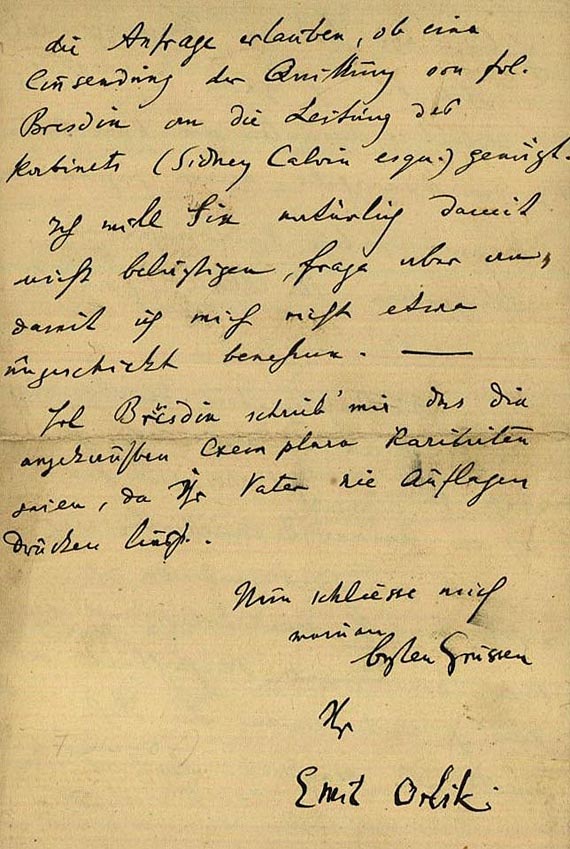 die Anfrage erlauben, ob eine
Einsendung der Quittung von Frl.
Bresdin an die Leitung des
Kabinets (Sidney Calvin esqu.) genügt.
Ich will Sie natürlich damit
nicht belästigen, frage aber an,
damit ich mich nicht etwa
ungeschickt benehme. —
Frl Bresdin schrieb mir das die
angekauften Exemplare Raritäten
seien, da Ihr Vater nie Auflagen
drucken liess.
Nun schliesse mich
meinen
besten Grüssen
Ihr
Emil Orlik.